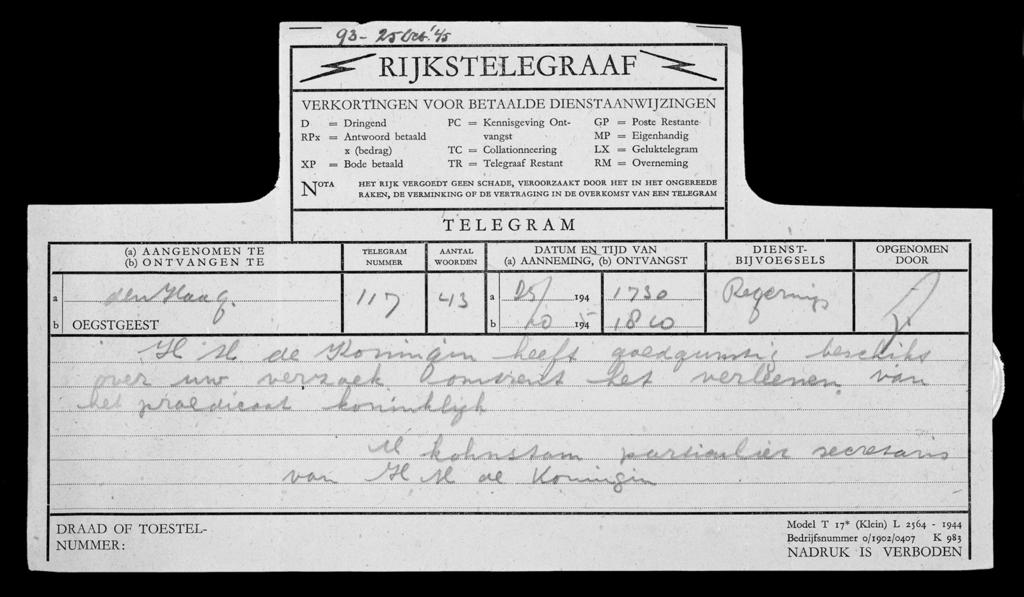 93 - 25 Oct. '45
RIJKSTELEGRAAF
VERKORTINGEN VOOR BETAALDE DIENSTAANWIJZINGEN
D = Dringend
RPx = Antwoord betaald
x (bedrag)
XP = Bode betaald
PC = Kennisgeving Ont-
vangst
TC = Collationneering
TR = Telegraaf Restant
GP = Poste Restante
MP = Eigenhandig
LX = Geluktelegram
RM = Overneming
NOTA HET RIJK VERGOEDT GEEN SCHADE, VEROORZAAKT DOOR HET IN HET ONGEREEDE
RAKEN, DE VERMINKING OF DE VERTRAGING IN DE OVERKOMST VAN EEN TELEGRAM
TELEGRAM
(a) AANGENOMEN TE
(b) ONTVANGEN TE
TELEGRAM
NUMMER
AANTAL
WOORDEN
DATUM EN TIJD VAN
(a) AANNEMING, (b) ONTVANGST
DIENST-
BIJVOEGSELS
OPGENOMEN
DOOR
a den Haag. 117 43 a 25/ 194 1730 Regerings
b OEGSTGEEST b 10 194 5 1810
H M de Koningin heeft goedgunstig beschikt
over uw verzoek omtrent het verleenen van
het praedicaat koninklijk
M kohnstam particulier secretaris
van H M de Koningin
DRAAD OF TOESTEL-
NUMMER:
Model T 17* (Klein) L 2564 - 1944
Bedrijfsnummer 0/1902/0407 K 983
NADRUK IS VERBODEN